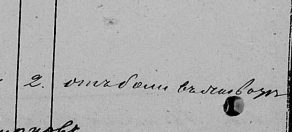 2. отъ боли въ животѣ